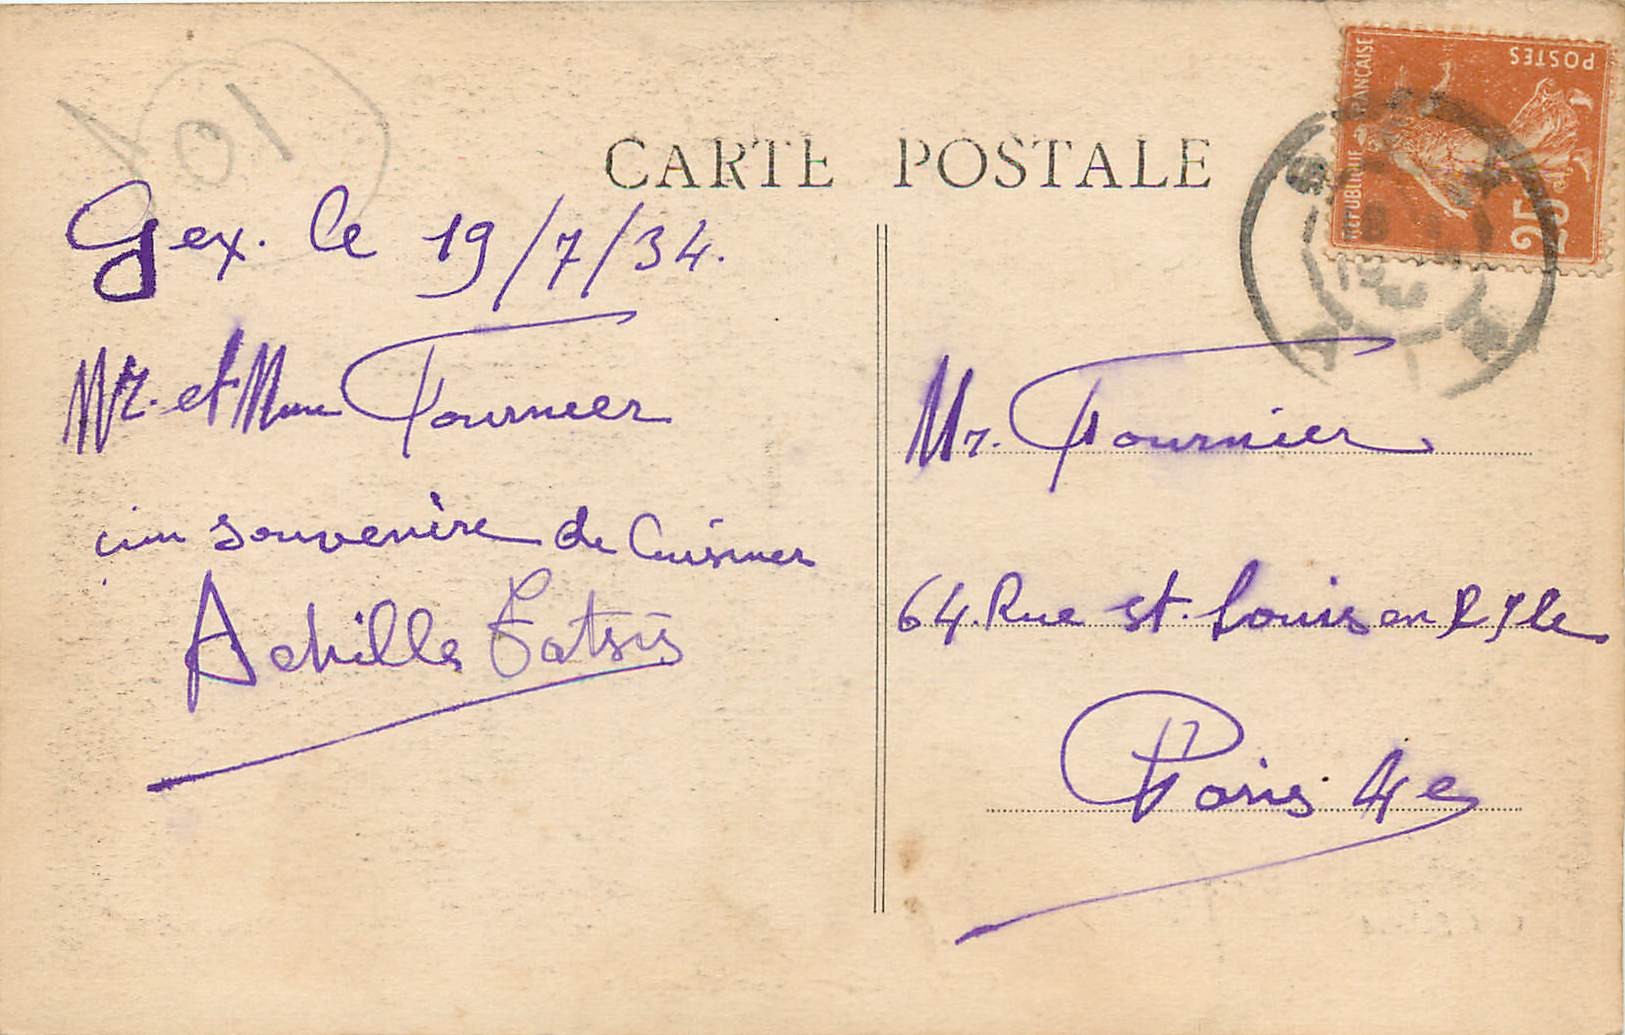 CARTE POSTALE
10
Gex. le 19/7/34.
Mr. et Mme Fournier
un souvenire de Cuisiner
Achille
Mr. Fournier
64. Rue st. Louis en l'Ile
Paris 4e
RÉPUBLIQUE FRANÇAISE
POSTES
25c.